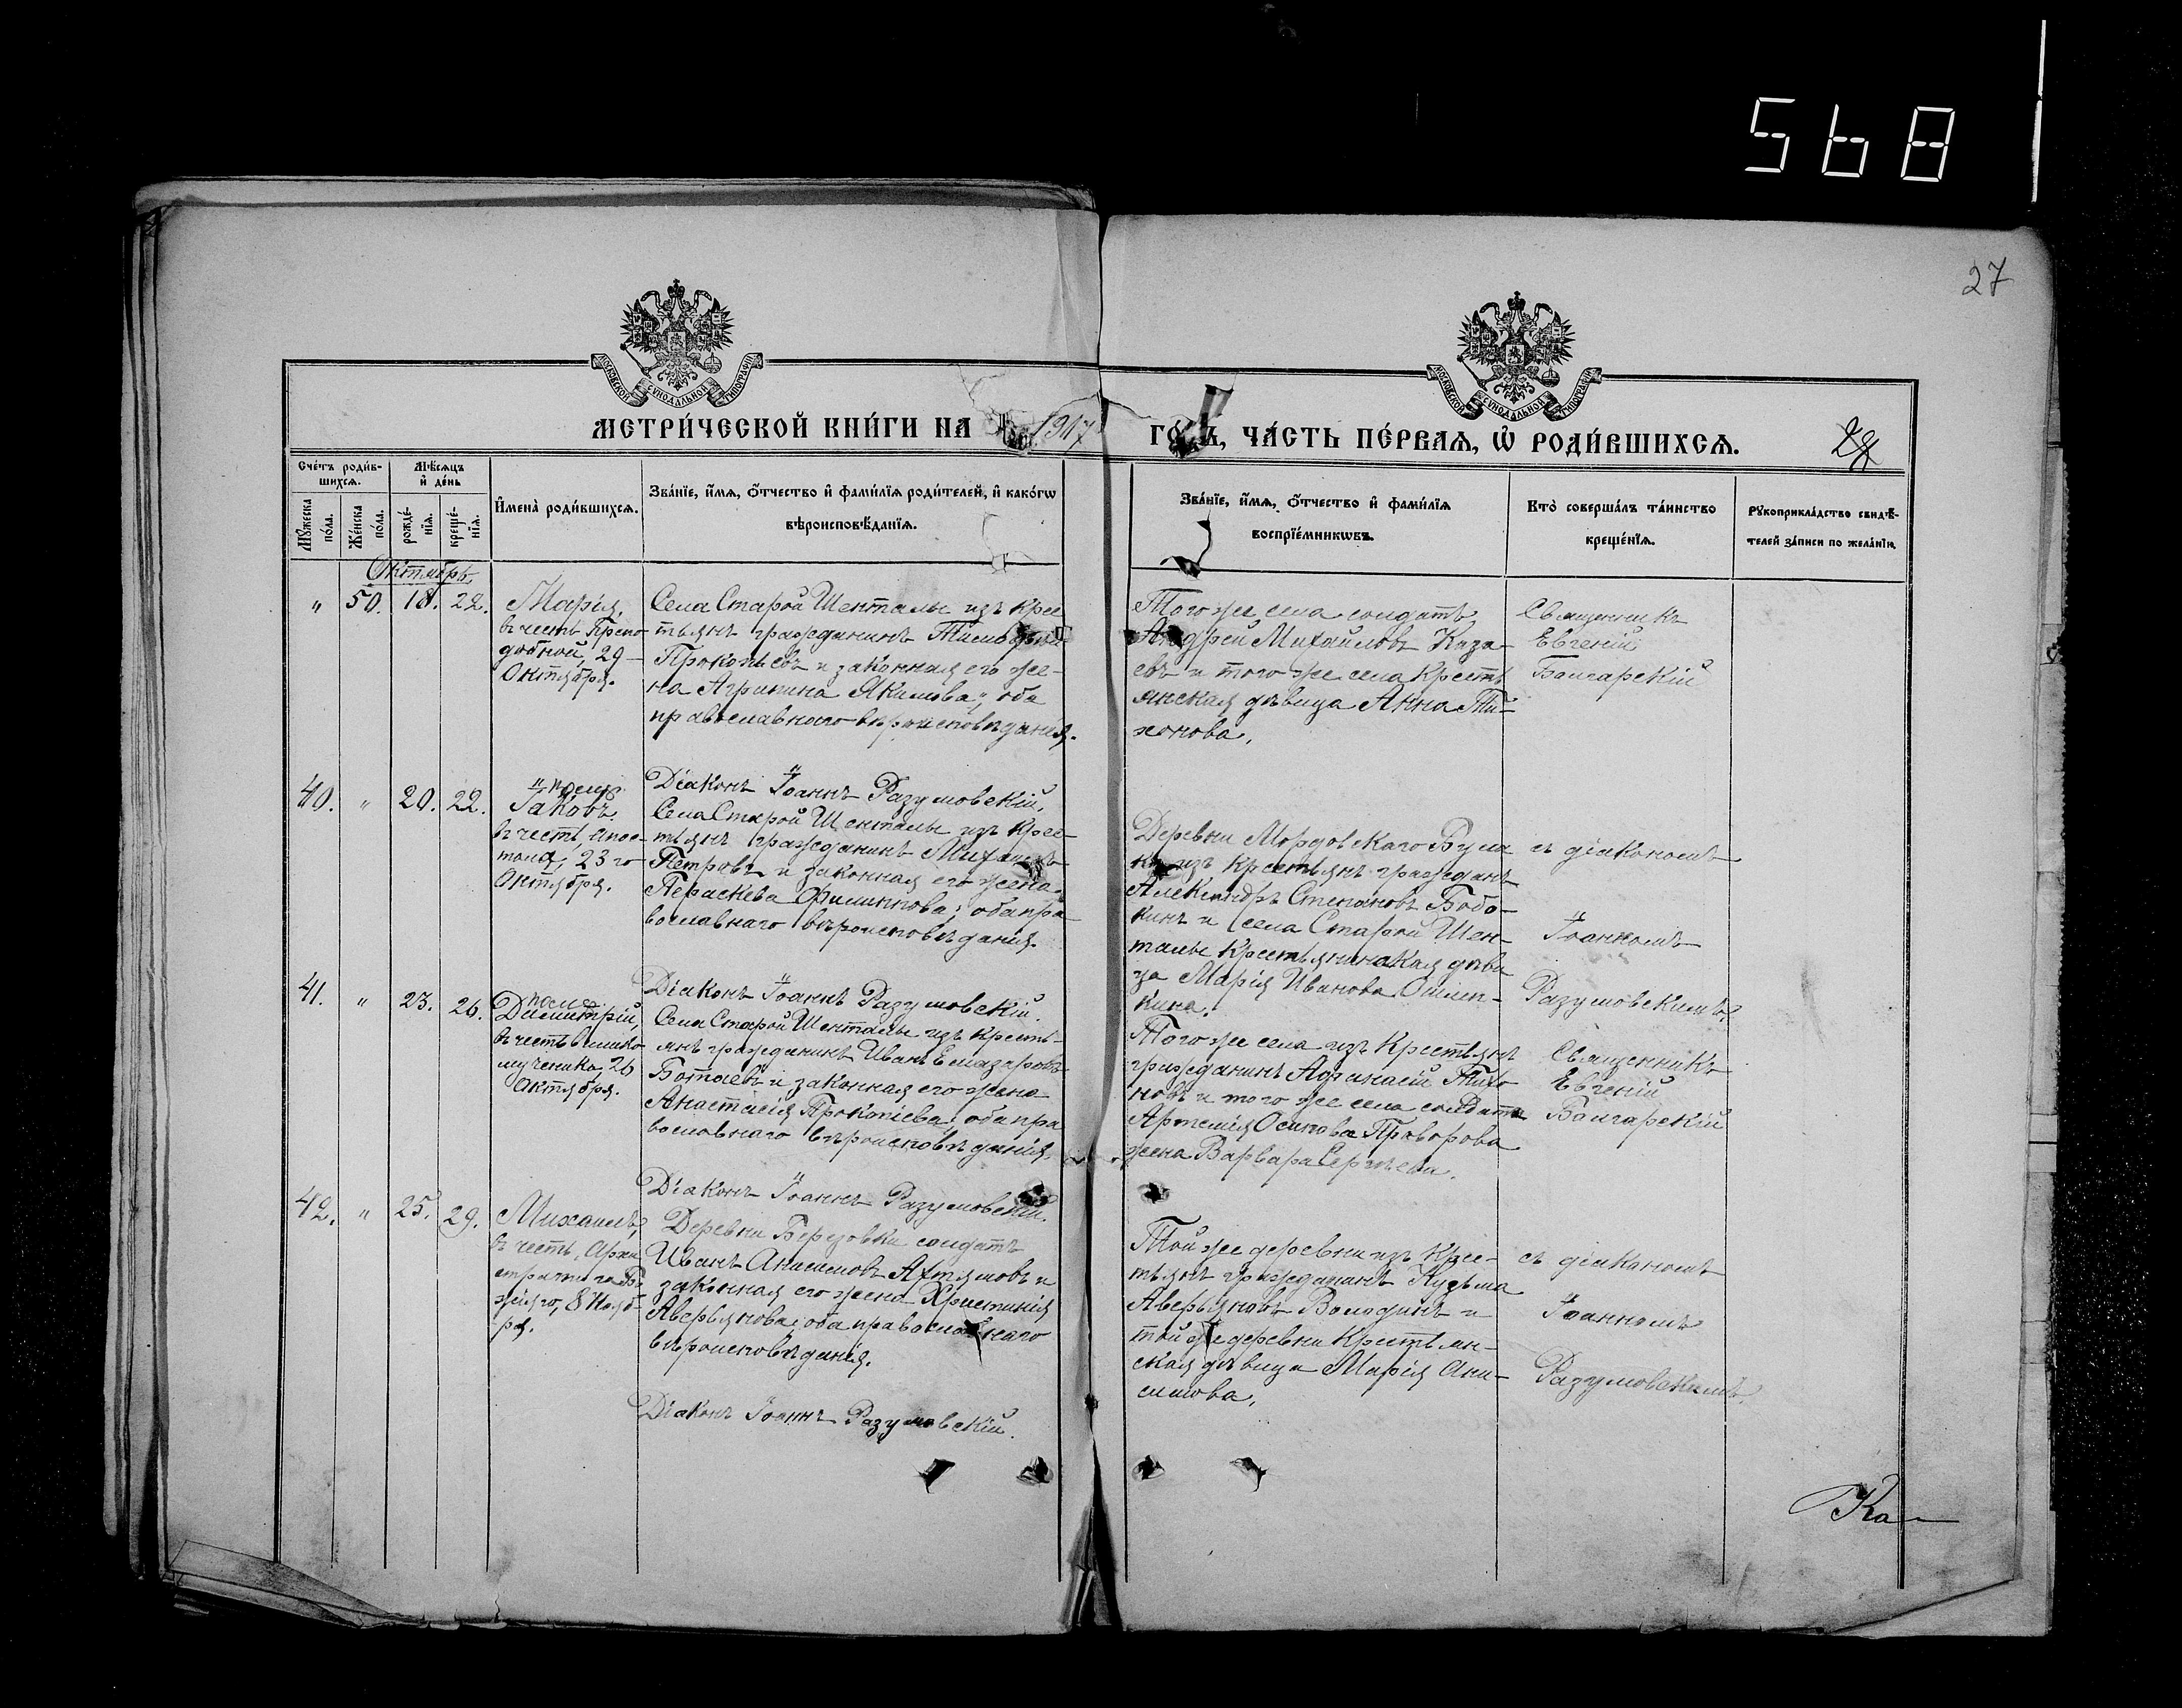 568
27
МОСКОВСКОЙ СУНОДАЛЬНОЙ ТИПОГРАФІИ
МОСКОВСКОЙ СУНОДАЛЬНОЙ ТИПОГРАФІИ
МЕТРИ́ЧЕСКОЙ КНИ́ГИ НА 1917
ГО́ДЪ, ЧА́СТЬ ПЕ́РВАѦ, Ѡ҆ РОДИ́ВШИХСѦ.
28
Сче́тъ роди́в-
шихсѧ.
Мѣ́сѧцъ
и҆ де́нь
Мꙋ́жеска
по́ла.
Же́нска
по́ла.
рожде́-
нїѧ.
креще́-
нїѧ.
И҆мена̀ роди́вшихсѧ.
Зва́нїе, и҆́мѧ, ѻ҆́тчество и҆ фами́лїѧ роди́телей, и҆ како́гѡ
вѣроисповѣ́данїѧ.
Зва́нїе, и҆́мѧ, ѻ҆́тчество и҆ фами́лїѧ
воспрїе́мникѡвъ.
Кто̀ соверша́лъ та́инство
креще́нїѧ.
Рꙋкоприкла́дство свидѣ́-
телей за́писи по жела́нїю.
Октябрь.
" 50. 18. 22.
Марія,
въ честь Препо-
добной, 29
Октября.
Села Старой Шенталы изъ крес
тьянъ гражданинъ
Прокопьевъ и законная его же-
на Агрипина Якимова; оба
православнаго вѣроисповѣданія.
Діаконъ Іоаннъ Разумовскій.
Того же села солдатъ
Андрей Михайловъ Каза-
евъ и того же села кресть
янская дѣвица Анна Ти-
хонова.
Священникъ
Евгеній
Болгарскій
40. " 20. 22.
Іаковъ,
въ честь, апос-
тола, 23 го
Октября.
Села Старой Шенталы изъ крес-
тьянъ гражданинъ Михаилъ
Петровъ и законная его жена
Параскева Филиппова; оба пра
вославнаго вѣроисповѣданія.
Діаконъ Іоаннъ Разумовскій.
Деревни Мордовскаго Була
ка изъ крестьянъ гражданъ
Александръ Степановъ Бобо-
кинъ и села Старой Шен-
талы крестьянинская дѣви
ца Марія Иванова
кина.
съ діакономъ
Іоанномъ
Разумовскимъ.
41. " 23. 26.
Димитрій,
въ честь велико
мученика, 26
Октября.
Села Старой Шенталы изъ кресть-
янъ гражданинъ Иванъ Елазаровъ
Ботаевъ и законная его жена
Анастасія Прокопіева; оба пра
вославнаго вѣроисповѣданія.
Діаконъ Іоаннъ Разумовскій.
Того же села изъ крестьянъ
гражданинъ Афанасій Тихо
новъ и того же села солдата
Артемія Осипова Прохорова
жена Варвара Сергѣева.
Священникъ
Евгеній
Болгарскій
42. " 25. 29.
Михаилъ,
въ честь, Архи
стратига Бо-
жіяго, 8 Нояб-
ря.
Деревни Березовки солдатъ
Иванъ Анисимовъ Ахтямовъ и
законная его жена Христинія
Аверьянова; оба православнаго
вѣроисповѣданія.
Діаконъ Іоаннъ Разумовскій.
Той же деревни изъ крес-
тьянъ гражданинъ Кузьма
Аверьяновъ Володинъ и
той же деревни крестьян-
ская дѣвица Марія Ани-
симова.
съ діакономъ
Іоанномъ
Разумовскимъ.
Ка